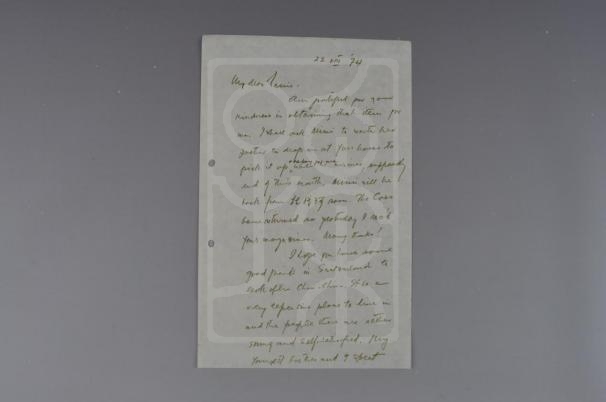 22 VIII '74
My dear
Am grateful for your
kindness in obtaining that item for
me. I shall ask Mimi to write her
to drop in at your house to
pick it up
end of this month. Mimi will be
back from soon. The
have returned so yesterday I rec'd
your magazines. Many thanks!
I hope you have some
good friends in Switzerland to
look after Chu. It is a
very expensive place to live in
and the people there are rather
smug and selfsatisfied. My
youngest brother and I spent